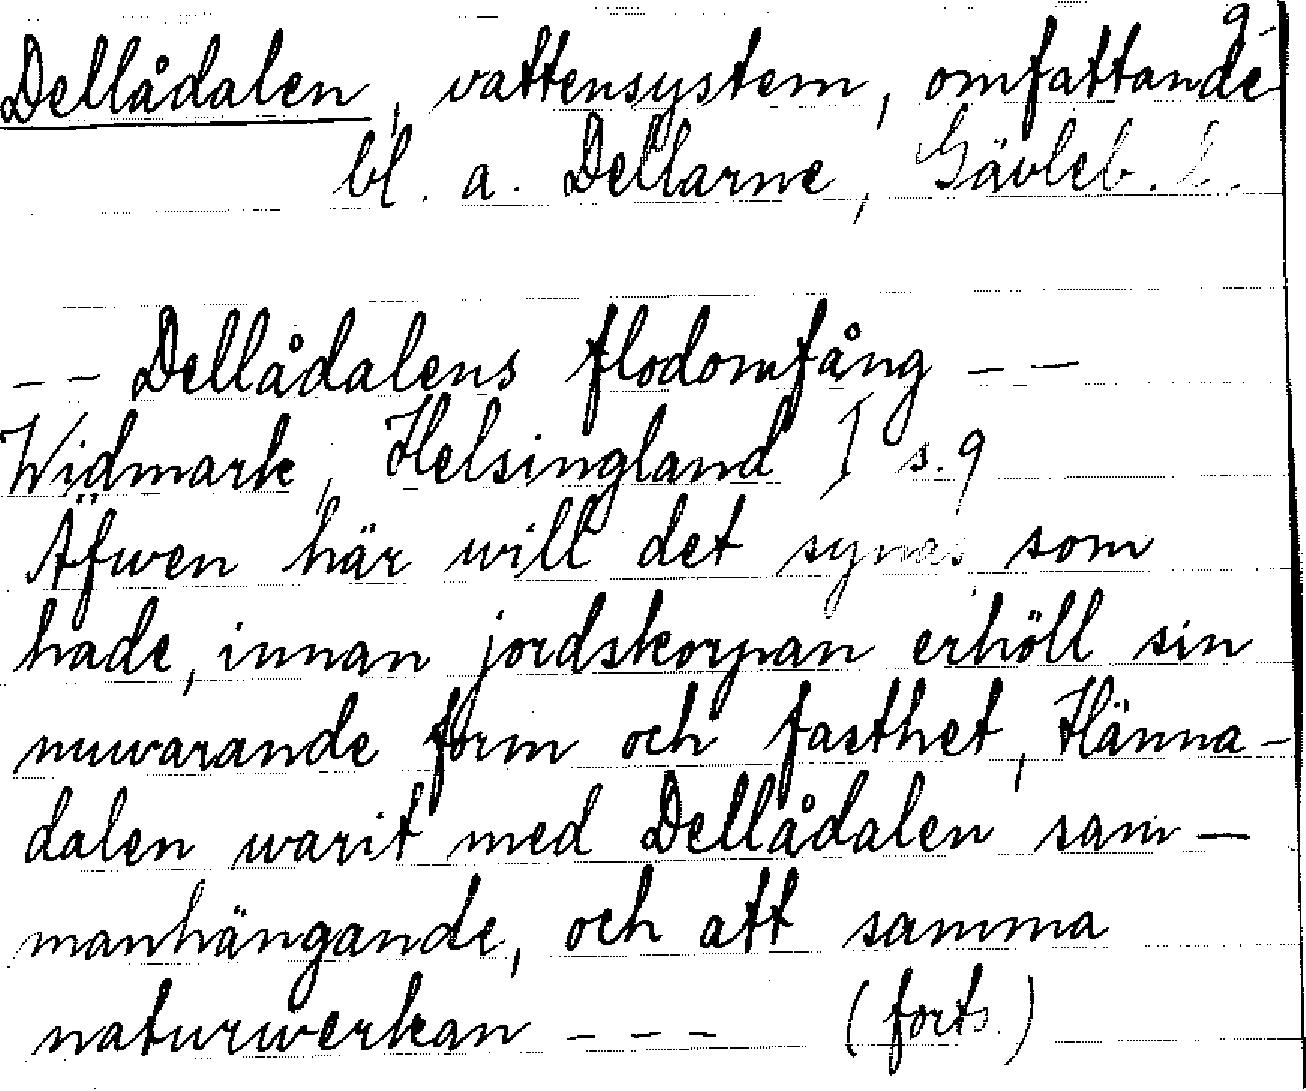 9.
Dellådalen, vattensystem, omfattande
bl. a. Dellarne, Gävleb. L.
-- Dellådalens flodomfång --
Widmark, Helsingland I s. 9
Äfwen här will det synas som
hade, innan jordskorpan erhöll sin
nuwarande form och fasthet, Hänna-
dalen warit med Dellådalen sam-
manhängande, och att samma
naturwerkan --- (forts.)